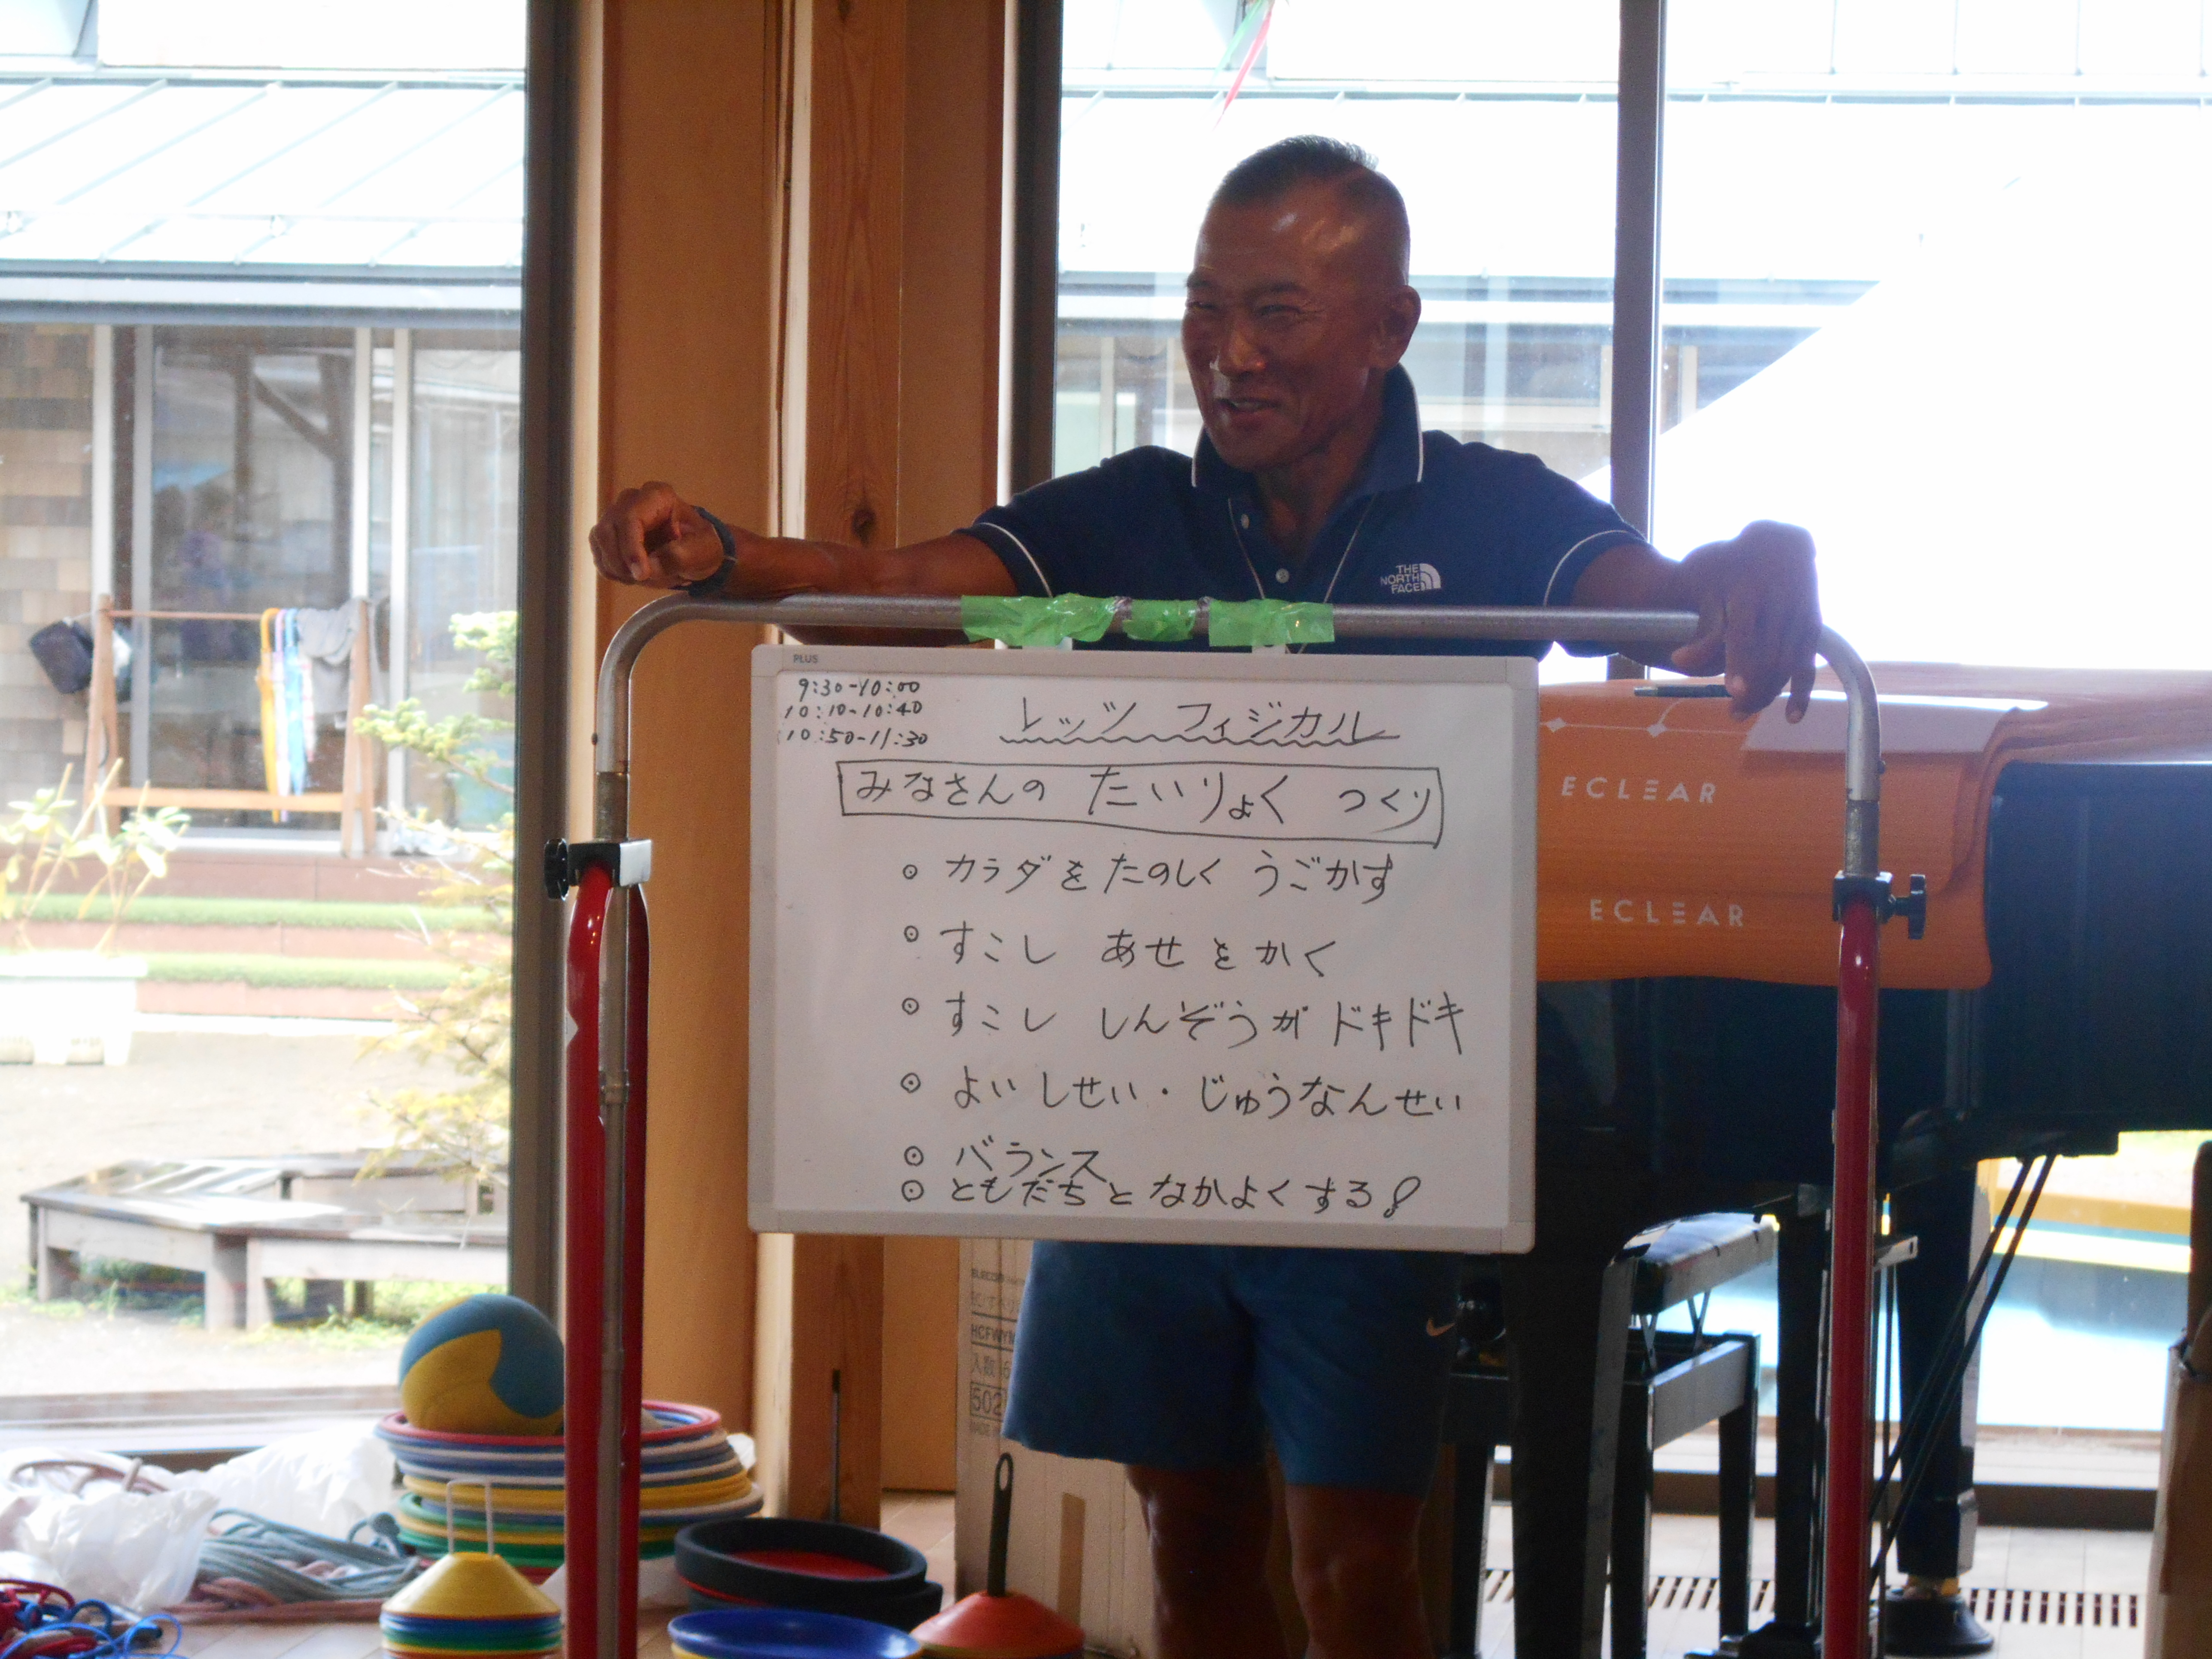 THE
NORTH
FACE
PLUS
9:30-10:00
10:10-10:40
10:50-11:30
レッツ フィジカル
みなさんの たいりょく つくり
⊙ カラダを たのしく うごかす
⊙ すこし あせをかく
⊙ すこし しんぞうが ドキドキ
⊙ よい しせい・じゅうなんせい
⊙ バランス
⊙ ともだちと なかよくする!
ECLEAR
ECLEAR
ELECOM
入数
502